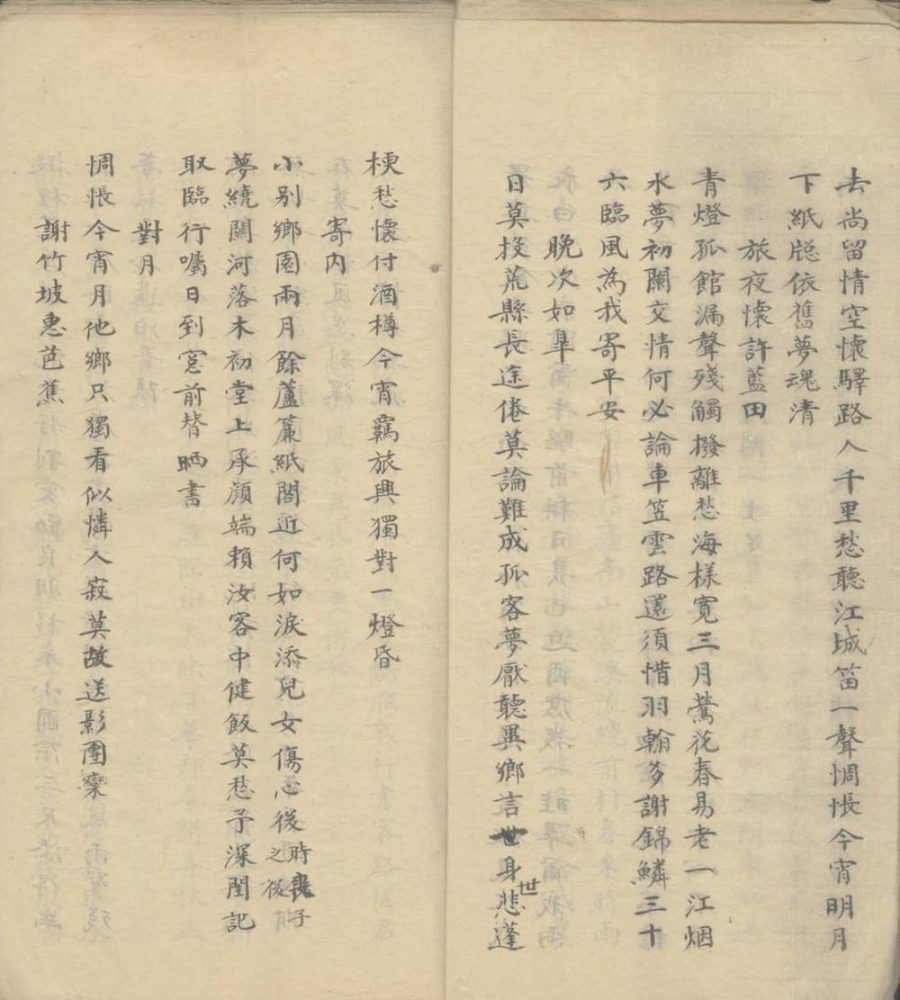 去尚留情空懷驛路人千里愁聽江城笛一聲惆悵今宵明月
下紙牕依舊夢魂清
旅夜懷許藍田
青燈孤館漏聲殘觸撥離愁海樣寬三月鶯花春易老一江烟
水夢初闌交情何必論車笠雲路還須惜羽翰多謝錦鱗三十
六臨風為我寄平安
晚次如皐
日莫投荒縣長途倦莫論難成孤客夢厭聽異鄉言身世悲蓬
梗愁懷付酒樽今宵羈旅興獨對一燈昏
寄内
小别鄉園兩月餘蘆簾紙閤近何如淚添兒女傷心後時喪子之後
夢繞關河落木初堂上承顔端賴汝客中健飯莫愁予深閨記
取臨行囑日到窓前替晒書
對月
惆悵今宵月他鄉只獨看似憐人寂莫故送影團欒
謝竹坡惠芭蕉